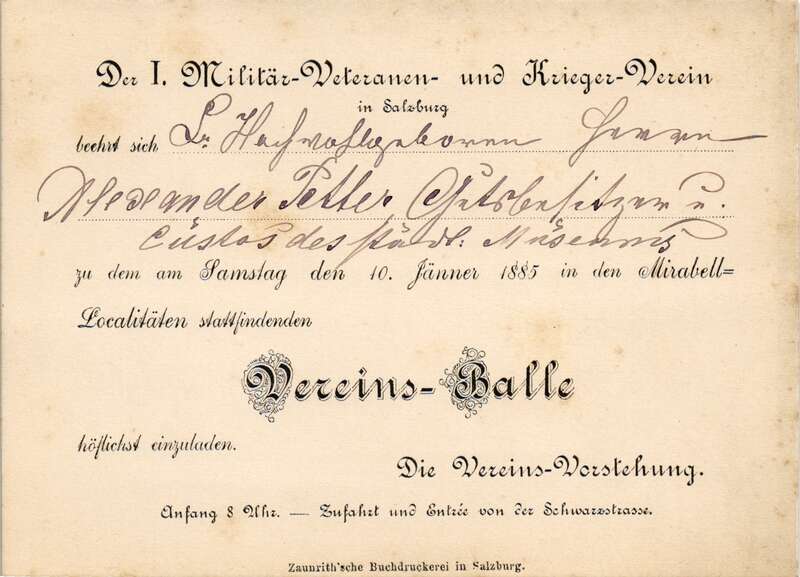 Der I. Militär-Veteranen- und Krieger-Verein
in Salzburg
beehrt sich Sr. Hochwohlgeboren Herrn
Alexander Petter Gutsbesitzer u.
Custos des städt: Museums
zu dem am Samstag den 10. Jänner 1885 in den Mirabell=
Localitäten stattfindenden
Vereins-Balle
höflichst einzuladen.
Die Vereins-Vorstehung.
Anfang 8 Uhr. — Zufahrt und Entrée von der Schwarzstrasse.
Zaunrith'sche Buchdruckerei in Salzburg.